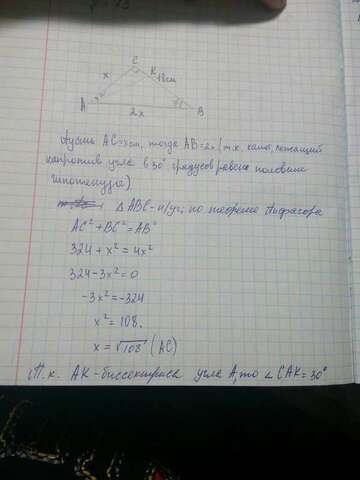 C
x
K
18см
A
2x
B
Пусть AC=x см, тогда AB=2x (т.к. катет, лежащий
напротив угла в 30° градусов равен половине
гипотенузы).
Δ ABC - п/уг., по теореме Пифагора
AC² + BC² = AB²
324 + x² = 4x²
324 - 3x² = 0
-3x² = -324
x² = 108.
x = √108 (AC)
Т.к. AK - биссектриса угла A, то ∠ CAK = 30°